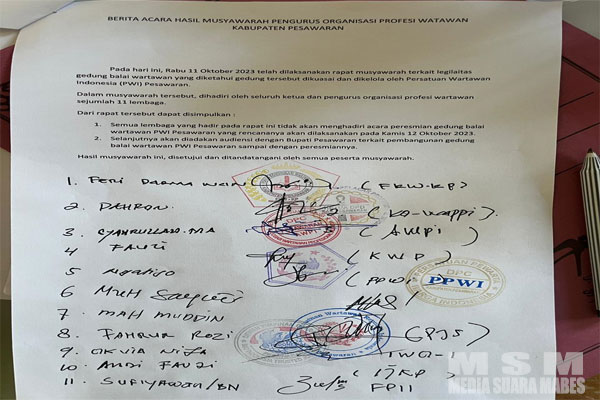 BERITA ACARA HASIL MUSYAWARAH PENGURUS ORGANISASI PROFESI WATAWAN
KABUPATEN PESAWARAN
Pada hari ini, Rabu 11 Oktober 2023 telah dilaksanakan rapat musyawarah terkait legilaitas
gedung balai wartawan yang diketahui gedung tersebut dikuasai dan dikelola oleh Persatuan Wartawan
Indonesia (PWI) Pesawaran.
Dalam musyawarah tersebut, dihadiri oleh seluruh ketua dan pengurus organisasi profesi wartawan
sejumlah 11 lembaga.
Dari rapat tersebut dapat disimpulkan :
1. Semua lembaga yang hadir pada rapat ini tidak akan menghadiri acara peresmian gedung balai
wartawan PWI Pesawaran yang rencananya akan dilaksanakan pada Kamis 12 Oktober 2023.
2. Selanjutnya akan diadakan audiensi dengan Bupati Pesawaran terkait pembangunan gedung
balai wartawan PWI Pesawaran sampai dengan peresmiannya.
Hasil musyawarah ini, disetujui dan ditandatangani oleh semua peserta musyawarah.
1. FERI
2. DAHRON
3. (AWPI)
4 FAUZI (KWP)
5
6 MUH
7 MAH MUDDIN
8 FAHRUR ROZI (PJS)
9 OKVIA
10 ANDI FAUZI
11 FPII
DPC
PPWI
MSM
MEDIA SUARA MABES